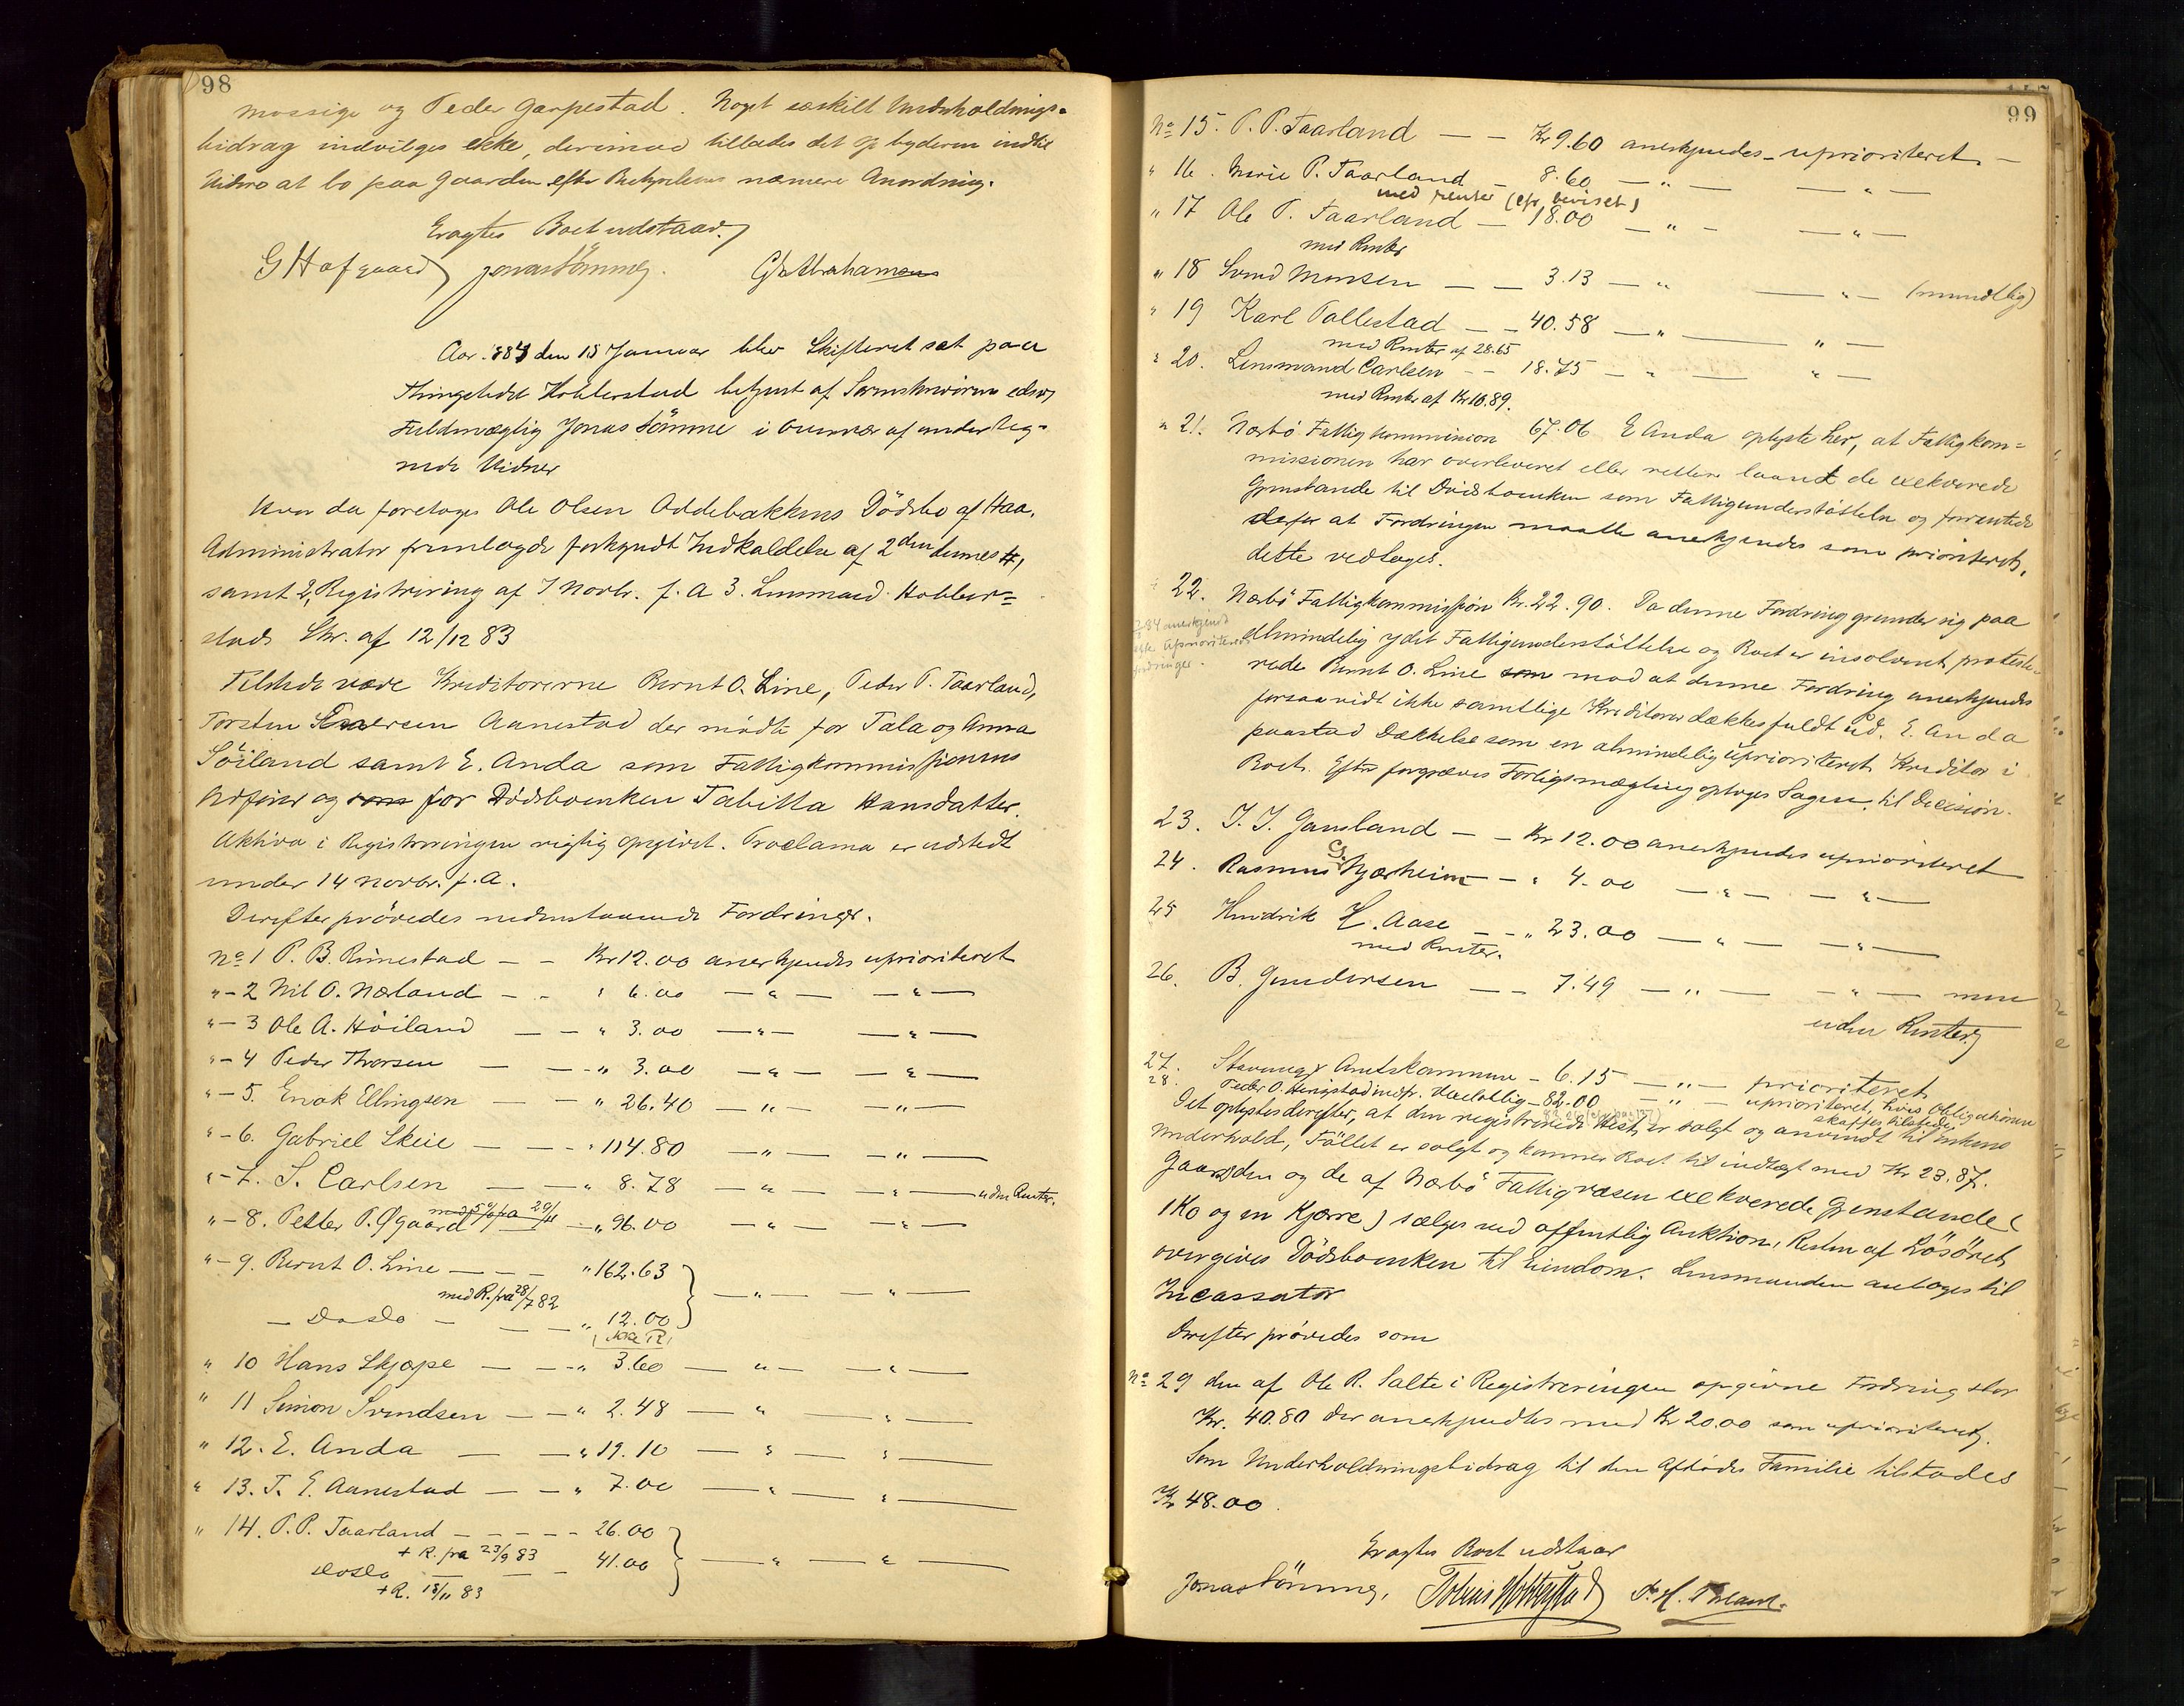 98
Mossige og Peder Garpestad. Noget særskilt Underholdnings-
bidrag indvilges ikke, derimod tillades det Opbyderen indtil
Videre at bo paa Gaarden efter Bestyrelsens nærmere Anordning.
Eragtes Boet udstaar.
G Hafgaard Jonas Sömme. Gb Abrahamsen
Aar 1884 den 15 Januar blev Skifteret sat paa
Thingstedet Hobberstad betjent af Sorenskriverens edsv.
Fuldmægtig Jonas Sömme i Overvær af underteg-
nede Vidner
Hvor da foretoges Ole Olsen Oddebakkens Dödsbo af Haa.
Administrator fremlagde forkyndt Indkaldelse af 2den dennes #1
samt 2, Registrering af 7 Novbr. f. A 3. Lensmand Hobber=
stads Skr. af 12/12 83
Tilstede vare Kreditorerne Bernt O. Line, Peder P. Taarland,
Torsten Enersen Aanestad der mödte for Tala og Anna
Söiland samt E. Anda som Fattigkommissionens
Ordförer og som for Dödsboenken Tabitta Hansdatter.
Aktiva i Registreringen rigtig opgivet. Proclama er udstedt
under 14 Novbr. f. A.
Derefter prövedes nedenstaaende Fordringer.
No 1 P. B. Rimestad - - Kr 12.00 anerkjendes uprioriteret
"- 2 Nil O. Nærland - - " 6.00 — " — — " —
"- 3 Ole A. Höiland — - " 3.00 — " — — " —
"- 4 Peder Thorsen — - " 3.00 — " — — " —
"- 5. Enok Ellingsen — - " 26.40 — " — — " —
"- 6. Gabriel Skeie — - " 114.80 — " — — " —
"- 7. S. Carlsen — - " 8.78 — " — — " — uden Renter.
med 5% fra 29/11
"- 8. Petter P. Øgaard - " 96.00 — " — — " —
"- 9. Bernt O. Line — - - " 162.63 } — " — — " —
med R. fra 28/7 82
— Do Do — — - " 12.00
(ikke R)
" 10 Hans Skjæpe — - " 3.60 — " — — " —
" 11 Simon Svendsen — - " 2.48 — " — — " —
" 12. E. Anda — - " 19.10 — " — — " —
" 13. T. E. Aanestad — - " 7.00 — " — — " —
" 14. P. P. Taarland - - - - - 26.00 } — " — — " —
+ R. fra 23/9 83
DoDo — — - 41.00
+ R. 15/11 83
99
No 15. P. P. Taarland — - Kr 9.60 anerkjendes uprioriteret —
" 16. Marie P. Taarland - 8.60 — " — — " —
med renter (cfr. beviset)
" 17 Ole P. Taarland — 18.00 — " - — " —
med Renter
" 18 Svend Monsen — — 3.13 — " — " — (mundtlig)
" 19 Karl Tollestad — - 40.58 — " — " —
med Renter af 28.65
" 20. Lensmand Carlsen - - 18.75 — " — " —
med Renter af Kr 10.89.
" 21. Nærbö Fattigkommission 67.06 E Anda oplyste her, at Fattigkom=
missionen har overleveret eller rettere laant de exekverede
Gjenstande til Dödsboenken som Fattigunderstöttelse og formente
derfor at Fordringen maatte anerkjendes som prioriteret,
dette vedtoges.
" 22. Nærbö Fattigkommission Kr. 22.90. Da denne Fordring grunder sig paa
almindelig ydet Fattigunderstöttelse og Boet er insolvent, proteste-
rede Bernt O. Line som mod at denne Fordring anerkjendes
forsaavidt ikke samtlige Kreditorer dækkes fuldt ud. E. Anda
paastod Dækkelse som en almindelig uprioriteret Kreditor i
Boet. Efter forgjæves Forligsmægling optoges Sagen til Decision.
23. I. I. Gausland — - Kr 12.00 anerkjendes uprioriteret
24. Rasmus G. Njærheim - " 4.00 — " — — " —
25 Hendrik H. Aase — - " 23.00 — " — — " —
med Renter.
26. B. Gundersen — - 7.49 — " — — " — men
uden Renter
27. Stavanger Amtskommune - 6.15 — " — prioriteret
28. Peder O. Hengstad — 82.00 — " — uprioriteret, hvis Obligationen
skaffes tilstede.
Det oplystes derefter, at den registrerede Hest er solgt og anvendt til Enkens
Underhold, Föllet er solgt og kommer Boet til indtægt med Kr 23.87.
Gaarden og de af Nærbö Fattigvæsen exekverede Gjenstande (
1 Ko og en Kjærre) sælges ved offentlig Auktion, Resten af Lösöret
overgives Dödsboenken til Eiendom. Lensmanden antoges til
Incassator
Derefter prövedes som
No 29 den af Ole R. Salte i Registreringen opgivne Fordring stor
Kr. 40.80 der anerkjendtes med Kr 20.00 som uprioriteret.
Som Underholdningsbidrag til den Afdödes Familie tilstodes
Kr 48.00.
Eragtes Boet udstaar
Jonas Sömme, Tobias Hobberstad